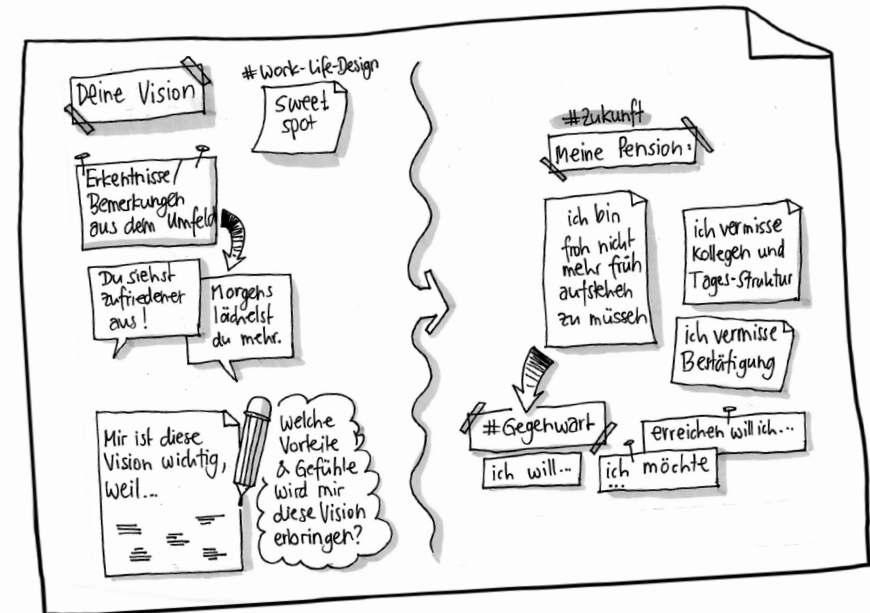 Deine Vision
#Work-Life-Design
Sweet
spot
Erkentnisse/
Bemerkungen
aus dem Umfeld
Du siehst
zufriedener
aus!
Morgens
lächelst
du mehr.
Mir ist diese
Vision wichtig,
weil...
Welche
Vorteile
& Gefühle
wird mir
diese Vision
erbringen?
#Zukunft
Meine Pension:
ich bin
froh nicht
mehr früh
aufstehen
zu müssen
ich vermisse
Kollegen und
Tages-Struktur
ich vermisse
Bestätigung
#Gegenwart
erreichen will ich...
ich will...
ich möchte
...